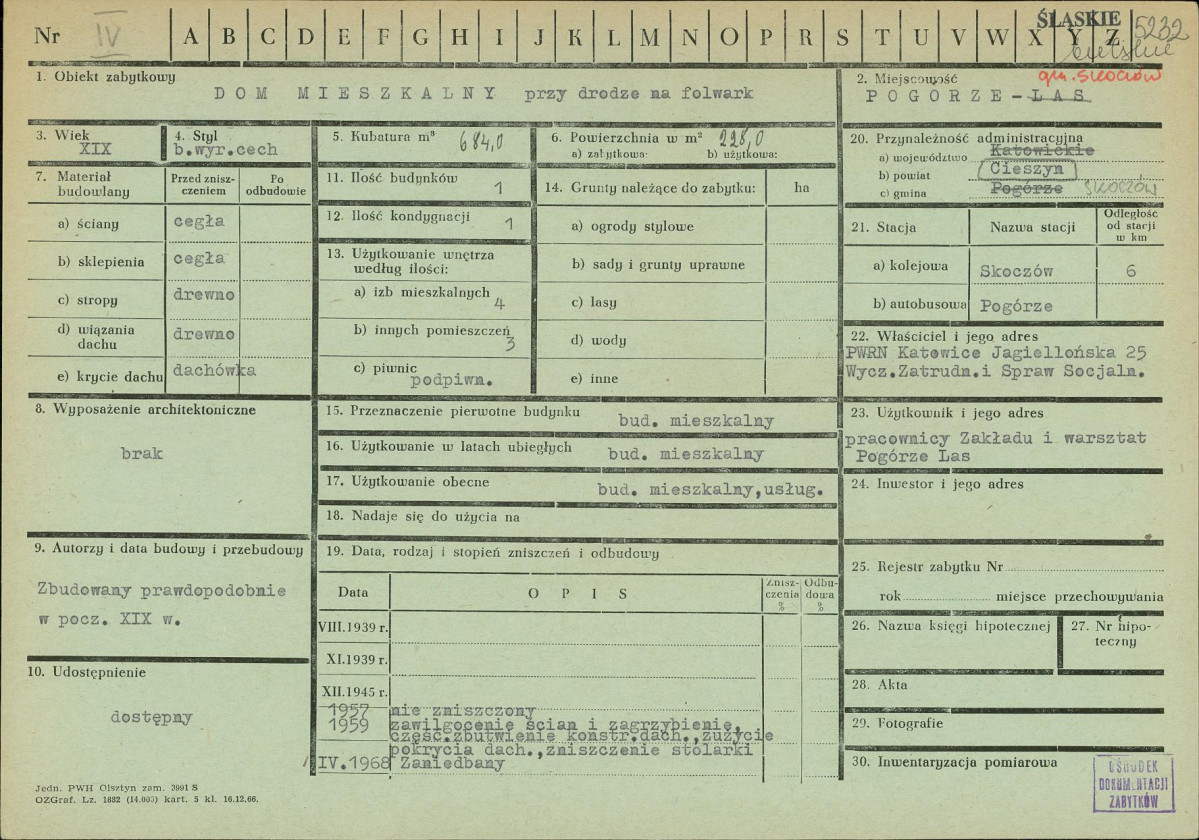 Nr IV A B C D E F G H I J K L M N O P R S T U V W X Y Z
ŚLĄSKIE 5232
bielskie
gm. SKOCZÓW
1. Obiekt zabytkowy
DOM MIESZKALNY przy drodze na folwark
2. Miejscowość
POGORZE-LAS
3. Wiek
XIX
4. Styl
b.wyr.cech
5. Kubatura m³ 684,0
6. Powierzchnia w m² 228,0
a) zabytkowa: b) użytkowa:
7. Materiał budowlany
Przed zniszczeniem
Po odbudowie
a) ściany cegła
b) sklepienia cegła
c) stropy drewno
d) wiązania dachu drewno
e) krycie dachu dachówka
8. Wyposażenie architektoniczne
brak
9. Autorzy i data budowy i przebudowy
Zbudowany prawdopodobnie
w pocz. XIX w.
10. Udostępnienie
dostępny
11. Ilość budynków 1
12. Ilość kondygnacji 1
13. Użytkowanie wnętrza
według ilości:
a) izb mieszkalnych 4
b) innych pomieszczeń 3
c) piwnic podpiwn.
14. Grunty należące do zabytku: ha
a) ogrody stylowe
b) sady i grunty uprawne
c) lasy
d) wody
e) inne
15. Przeznaczenie pierwotne budynku bud. mieszkalny
16. Użytkowanie w latach ubiegłych bud. mieszkalny
17. Użytkowanie obecne bud. mieszkalny,usług.
18. Nadaje się do użycia na
19. Data, rodzaj i stopień zniszczeń i odbudowy
Data OPIS Zniszczenia % Odbudowa %
VIII.1939 r.
XI.1939 r.
XII.1945 r.
1957 nie zniszczony
1959 zawilgocenie ścian i zagrzybienie,
częśc.zbutwienie konstr.dach.,zużycie
pokrycia dach.,zniszczenie stolarki
IV.1968 Zaniedbany
20. Przynależność administracyjna
a) województwo Katowickie
b) powiat Cieszyn
c) gmina Pogórze SKOCZÓW
21. Stacja Nazwa stacji Odległość od stacji w km
a) kolejowa Skoczów 6
b) autobusowa Pogórze
22. Właściciel i jego adres
PWRN Katowice Jagiellońska 25
Wycz.Zatrudn.i Spraw Socjaln.
23. Użytkownik i jego adres
pracownicy Zakładu i warsztat
Pogórze Las
24. Inwestor i jego adres
25. Rejestr zabytku Nr
rok miejsce przechowywania
26. Nazwa księgi hipotecznej
27. Nr hipoteczny
28. Akta
29. Fotografie
30. Inwentaryzacja pomiarowa
OŚRODEK
DOKUMENTACJI
ZABYTKÓW
Jedn. PWH Olsztyn zam. 3991 S
OZGraf. Lz. 1882 (14.000) kart. 5 kl. 16.12.66.